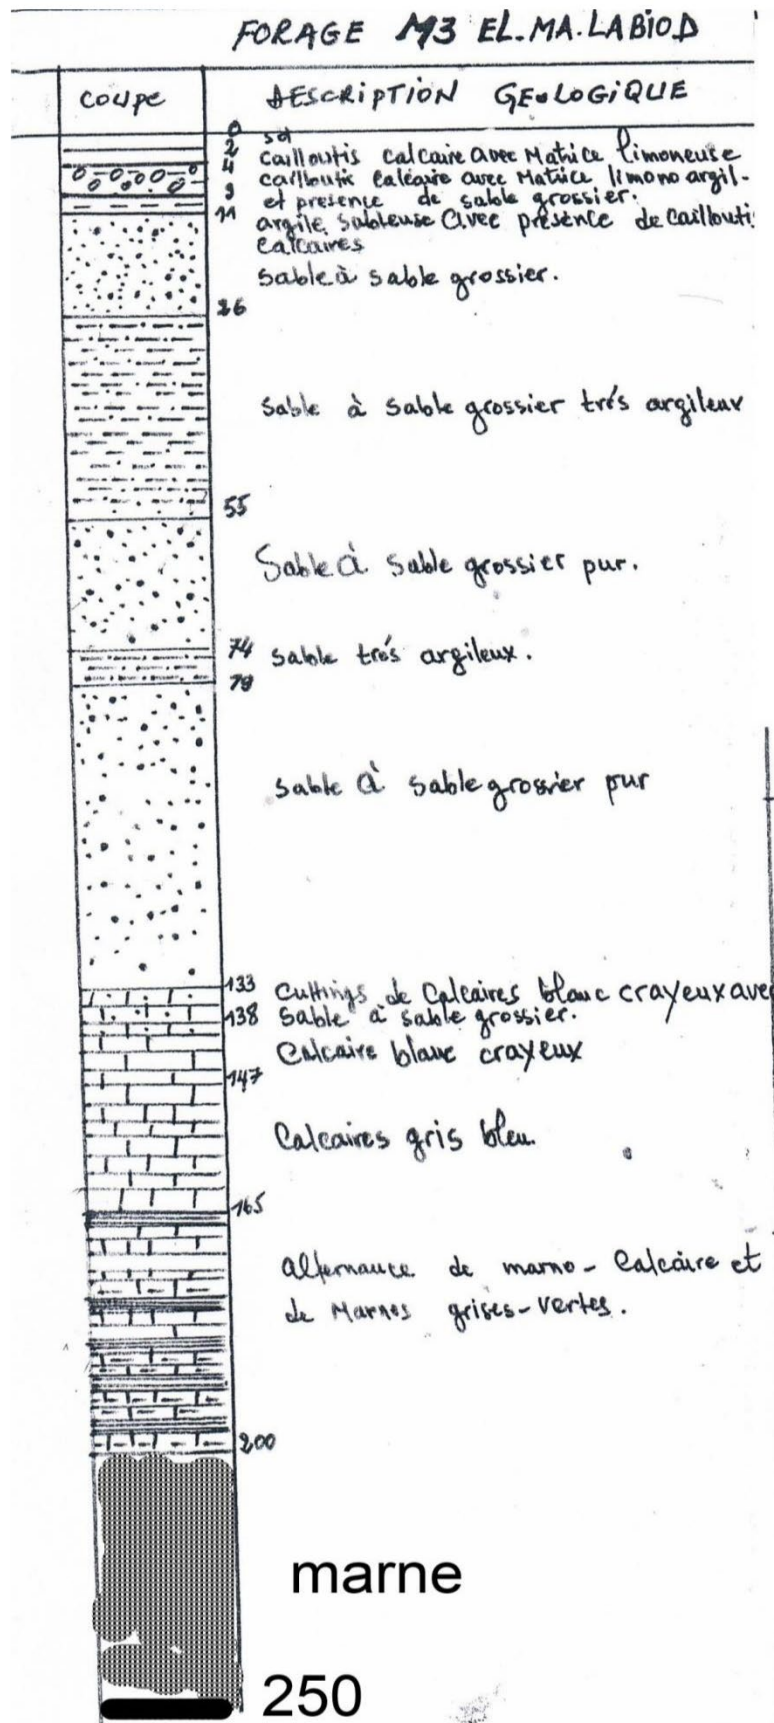 FORAGE M3 EL.MA.LABIOD
coupe
DESCRIPTION GEOLOGIQUE
0
sol
2
cailloutis calcaire avec Matrice limoneuse
4
cailloutis calcaire avec Matrice limono argil-
9
et presence de sable grossier.
11
argile sableuse avec présence de caillouti
calcaires
sable à sable grossier.
26
sable à sable grossier trés argileux
55
Sable à sable grossier pur.
74
sable trés argileux.
79
sable à sable grossier pur
133
cuttings de Calcaires blanc crayeux avec
138
sable à sable grossier.
Calcaire blanc crayeux
147
Calcaires gris bleu.
165
alternance de marno-Calcaire et
de Marnes grises-vertes.
200
marne
250